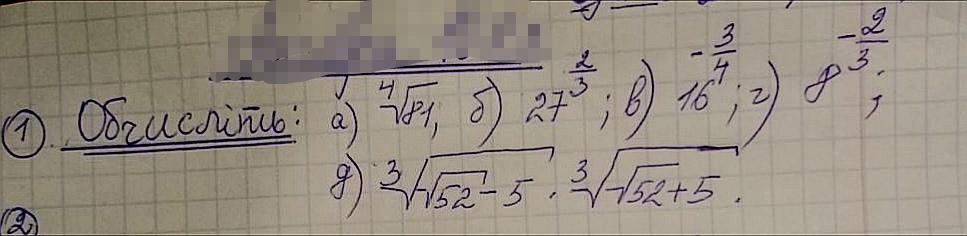 ① Обчисліть: а) ∜81, б) 27^(2/3); в) 16^(-3/4); г) 8^(-2/3);
д) ∛(√52 - 5) · ∛(√52 + 5).
②